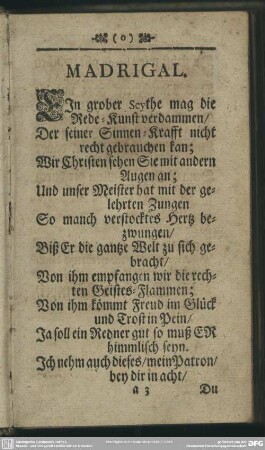 ( 0 )
MADRIGAL.
EIn grober Scythe mag die
Rede-Kunst verdammen/
Der seiner Sinnen-Krafft nicht
recht gebrauchen kan;
Wir Christen sehen Sie mit andern
Augen an;
Und unser Meister hat mit der ge-
lehrten Zungen
So manch verstocktes Hertz be-
zwungen/
Biß Er die gantze Welt zu sich ge-
bracht/
Von ihm empfangen wir die rech-
ten Geistes-Flammen;
Von ihm kömmt Freud im Glück
und Trost in Pein/
Ja soll ein Redner gut so muß ER
himmlisch seyn.
Ich nehm auch dieses/ mein Patron/
bey dir in acht/
a 3 Du